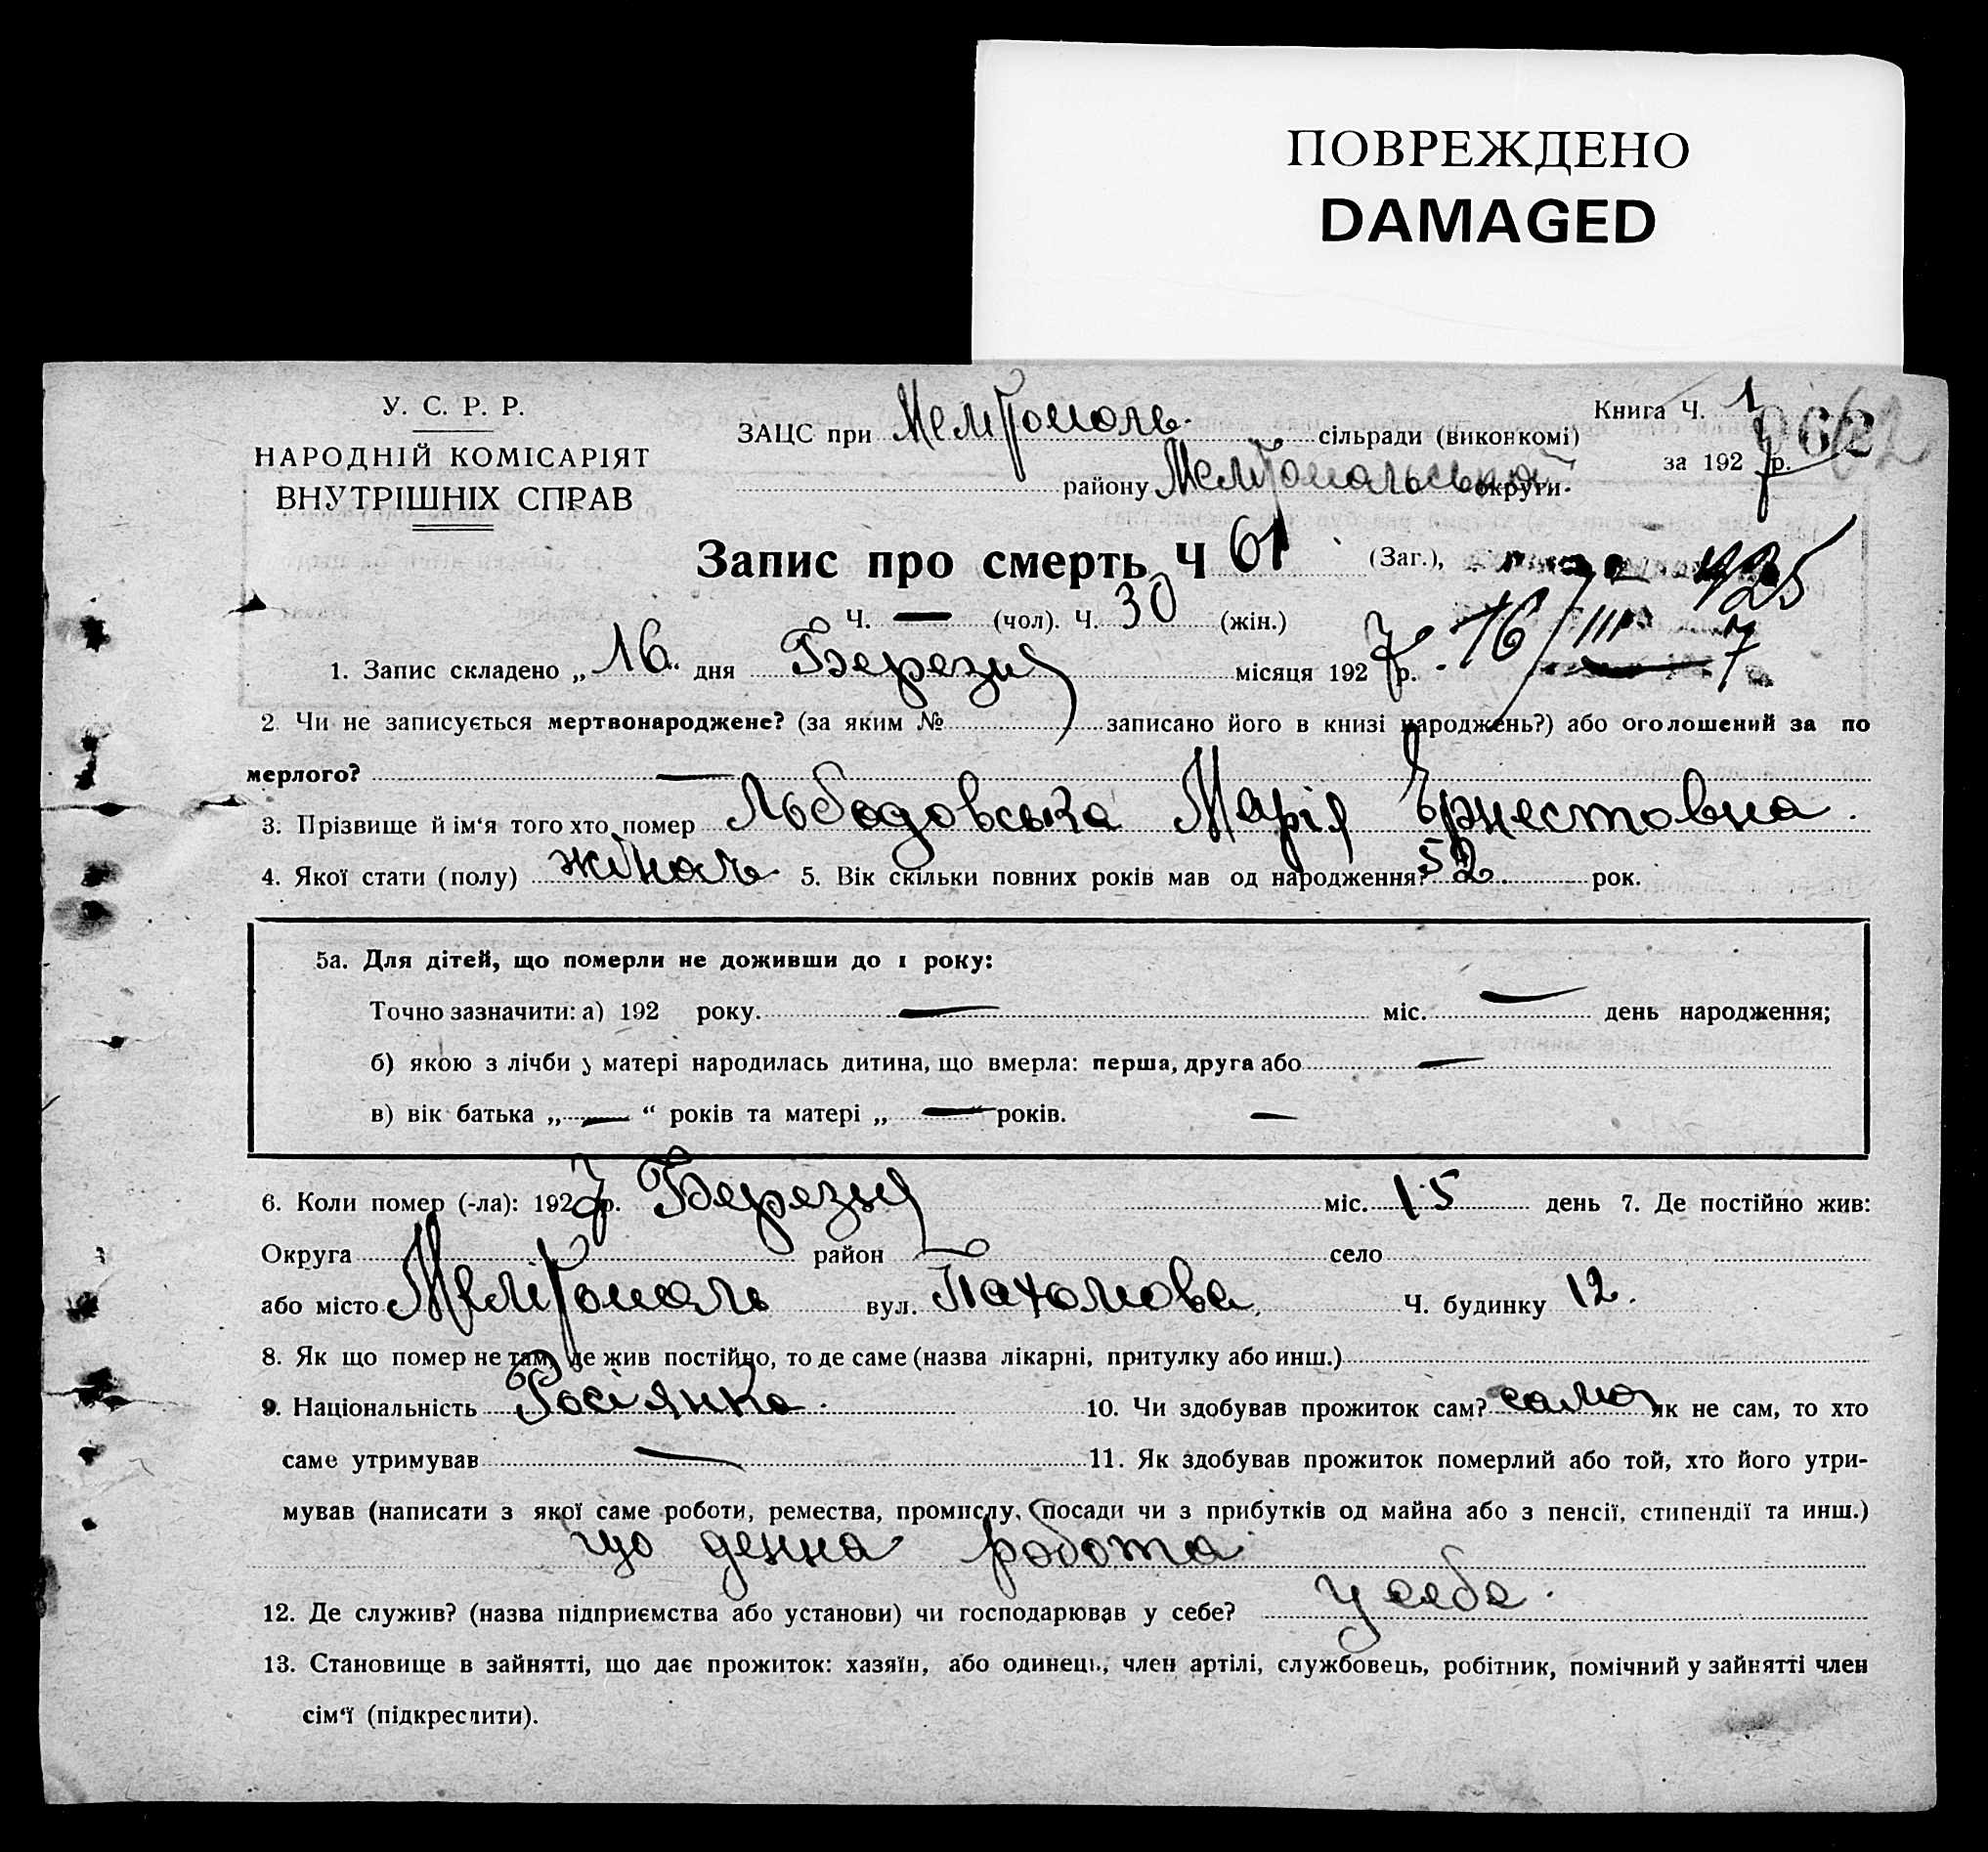 ПОВРЕЖДЕНО
DAMAGED
У. С. Р. Р.
НАРОДНІЙ КОМІСАРІЯТ
ВНУТРІШНІХ СПРАВ
ЗАЦС при Мелітополь сільради (виконкомі)
району Мелітопольської округи.
Книга Ч. 1
за 1927 р.
62
Запис про смерть Ч 61 (Заг.),
Ч. — (чол). Ч. 30 (жін.)
16/III 7
1. Запис складено „16" дня Березня місяця 1927 р.
2. Чи не записується мертвонароджене? (за яким № записано його в книзі народжень?) або оголошений за по
мерлого? —
3. Прізвище й ім'я того хто помер Льбодовська Марія Ернестовна.
4. Якої стати (полу) жіноч. 5. Вік скільки повних років мав од народження? 52. рок.
5а. Для дітей, що померли не доживши до 1 року:
Точно зазначити: а) 192 року. — міс. — день народження;
б) якою з лічби у матері народилась дитина, що вмерла: перша, друга або —
в) вік батька „ — “ років та матері „ — “ років. —
6. Коли помер (-ла): 1927 р. Березня міс. 15 день 7. Де постійно жив:
Округа район — село
або місто Мелітополь вул. Пахомова, Ч. будинку 12.
8. Як що помер не там, де жив постійно, то де саме (назва лікарні, притулку або инш.)
9. Національність Росіянка. 10. Чи здобував прожиток сам? сама як не сам, то хто
саме утримував — 11. Як здобував прожиток померлий або той, хто його утри-
мував (написати з якої саме роботи, ремества, промислу, посади чи з прибутків од майна або з пенсії, стипендії та инш.)
що денна робота
12. Де служив? (назва підприємства або установи) чи господарював у себе? у себе.
13. Становище в зайнятті, що дає прожиток: хазяїн, або одинець, член артілі, службовець, робітник, помічний у зайнятті член
сім'ї (підкреслити).